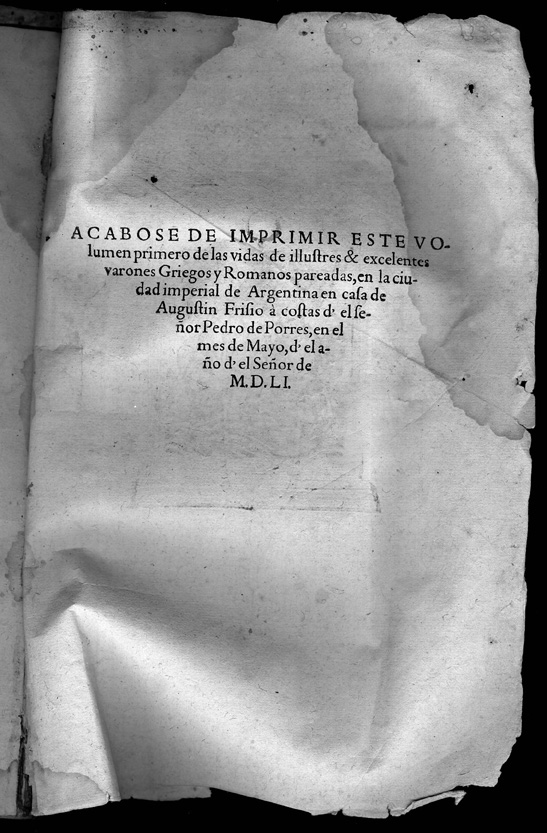 ACABOSE DE IMPRIMIR ESTE VO-
lumen primero de las vidas de illuſtres & excelentes
varones Griegos y Romanos pareadas, en la ciu-
dad imperial de Argentina en caſa de
Auguſtin Friſio à coſtas d' el ſe-
ñor Pedro de Porres, en el
mes de Mayo, d' el a-
ño d' el Señor de
M.D.LI.